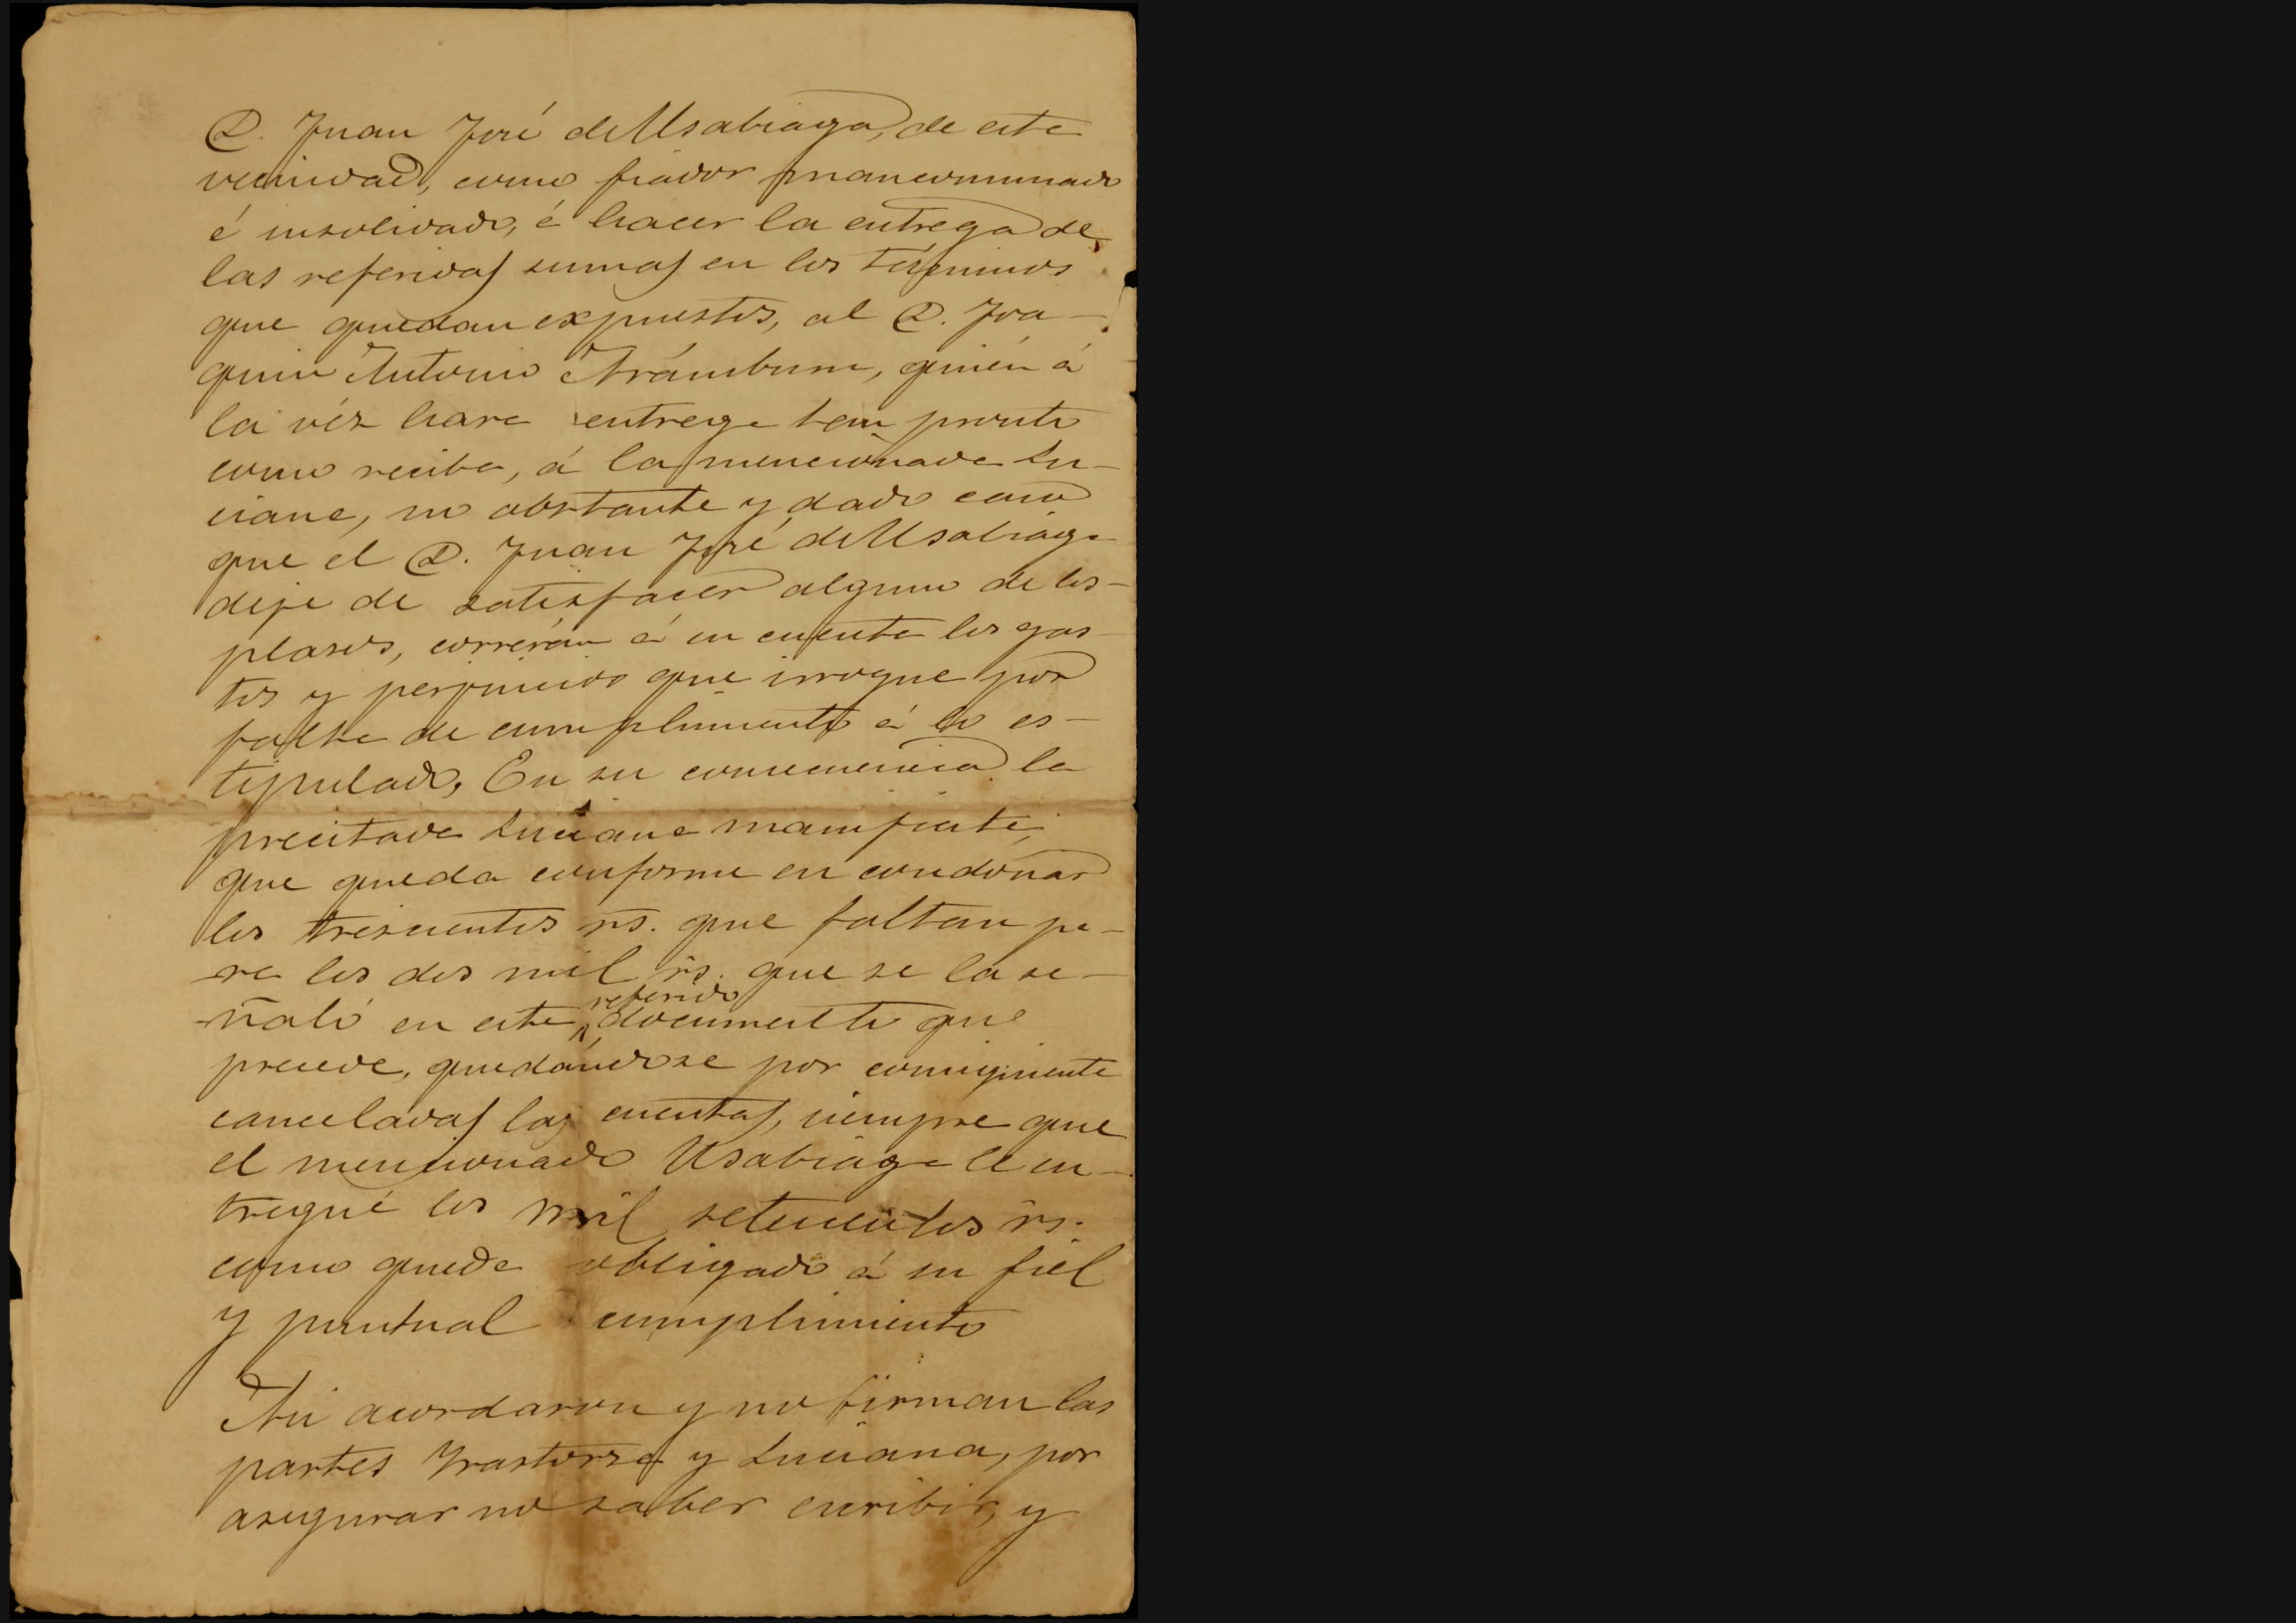 D. Juan José de Usabiaga, de esta
vecindad, como fiador mancomunado
é insolidado, á hacer la entrega de
las referidas sumas en los términos
que quedan expuestos, al D. Joa-
quin Antonio Arámburu, quién á
la véz hara entrega tan pronto
como reciba, á la mencionada Lu-
ciana, no obstante y dado caso
que el D. Juan José de Usabiaga
deje de satisfacer alguno de los
plasos, correrán á su cuenta los gas-
tos y perjuicios que irrogue por
falta de cumplimiento á lo es-
tipulado, En su consecuencia la
precitada Luciana manifiesta,
que queda conforme en condonar
los trescientos rs. que faltan pa-
ra los dos mil rs. que se la se-
ñaló en este referido documento que
precede, quedándose por consiguiente
canceladas las cuentas, siempre que
el mencionado Usabiaga le en-
tregué los mil setecientos rs.
como queda obligado á su fiel
y puntual cumplimiento
Asi acordaron y no firman las
partes Yrastorza y Luciana, por
asegurar no saber escribir, y